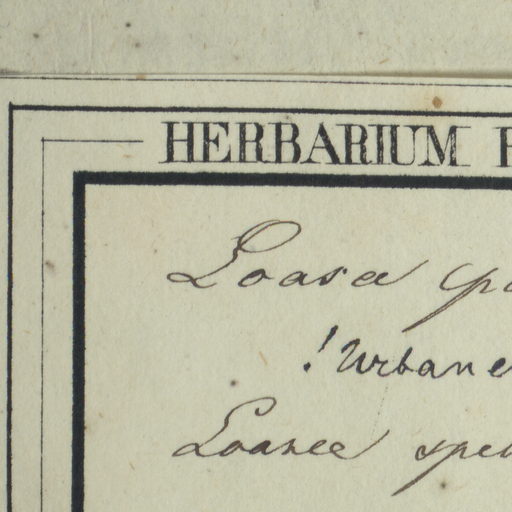 HERBARIUM
Loasa
! Urban
Loasee